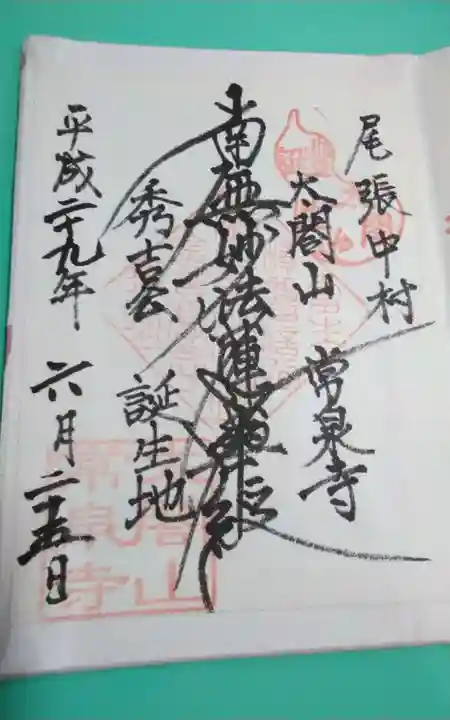 尾張中村
太閤山 常泉寺
南無妙法蓮華経
秀吉公 誕生地
平成二十九年 六月二十五日
太閤山
常泉寺